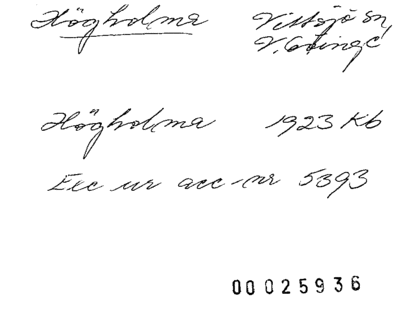 Högholma Vittsjö sn,
V. Göinge
Högholma 1923 Kb
Exc ur acc-nr 5393
00025936